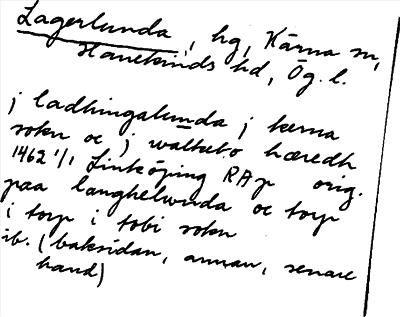 Lagerlunda, hg, Kärna sn,
Hanekinds hd, Ög. l.
j ladhingalunda j kerna
sokn oc j walkebo hæredh
1462 1/1 Linköping RAp orig.
paa langhelunda oc torp
i torp i tobi sokn
ib. (baksidan, annan, senare
hand)